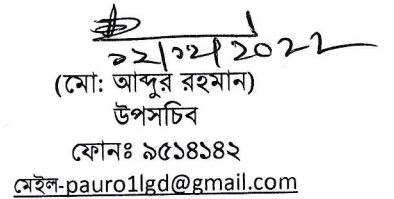 ১২/১২/2022
(মো: আব্দুর রহমান)
উপসচিব
ফোনঃ ৯৫১৪১৪২
মেইল-pauro1lgd@gmail.com